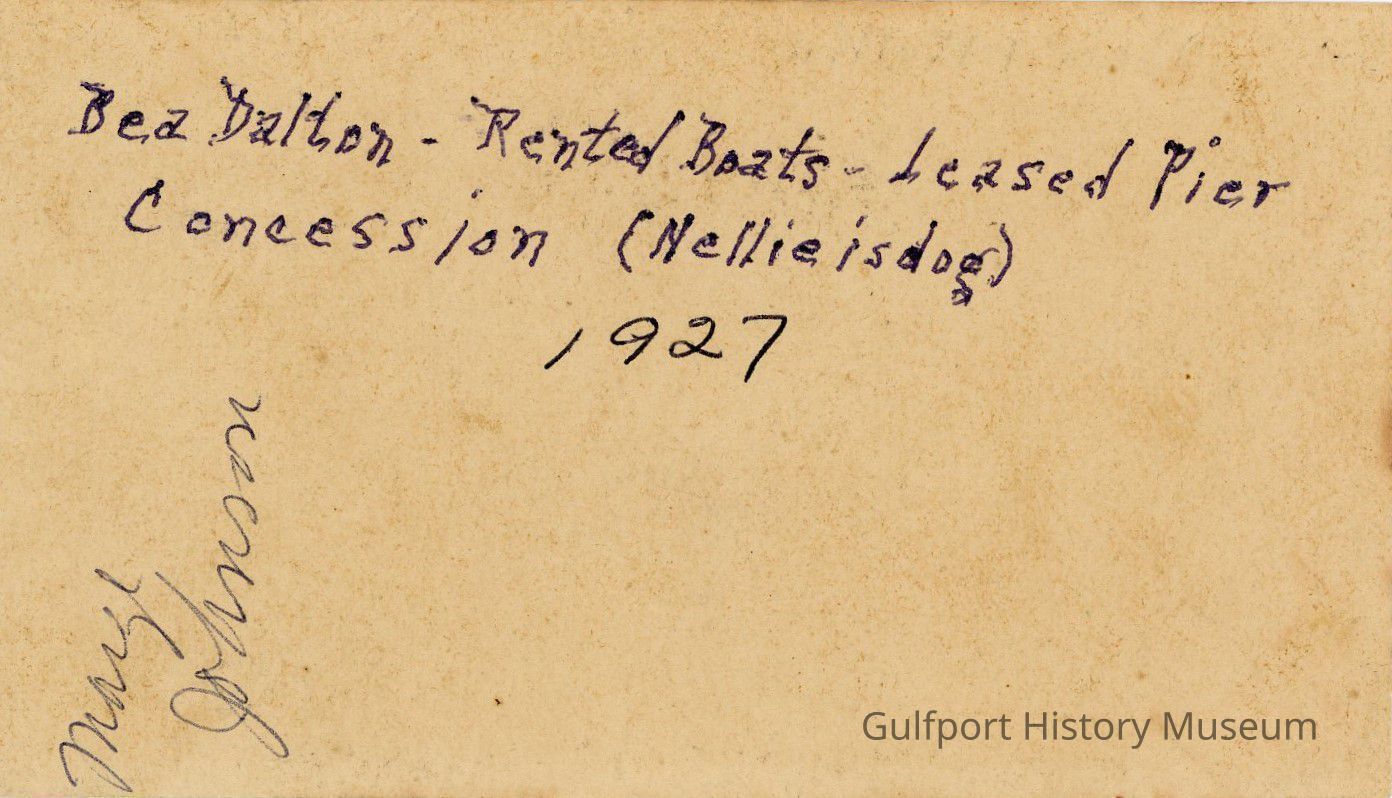 Bea Dalton - Rented Boats - Leased Pier
Concession (Nellie is dog)
1927
Marge
Johnson
Gulfport History Museum